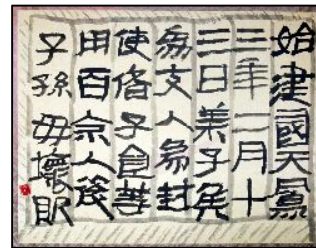 始建國天鳳
三年二月十
三日萊子侯
為支人為封
使偌子食等
用百余人後
子孫毋壞敗